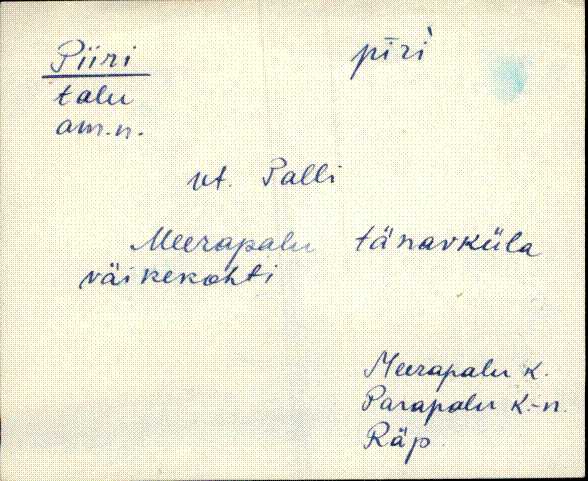 Piiri pīri̇̀
talu
am.n.
vt. Palli
Meerapalu tänavküla
väikekohti
Meerapalu k.
Parapalu k.-n.
Räp.